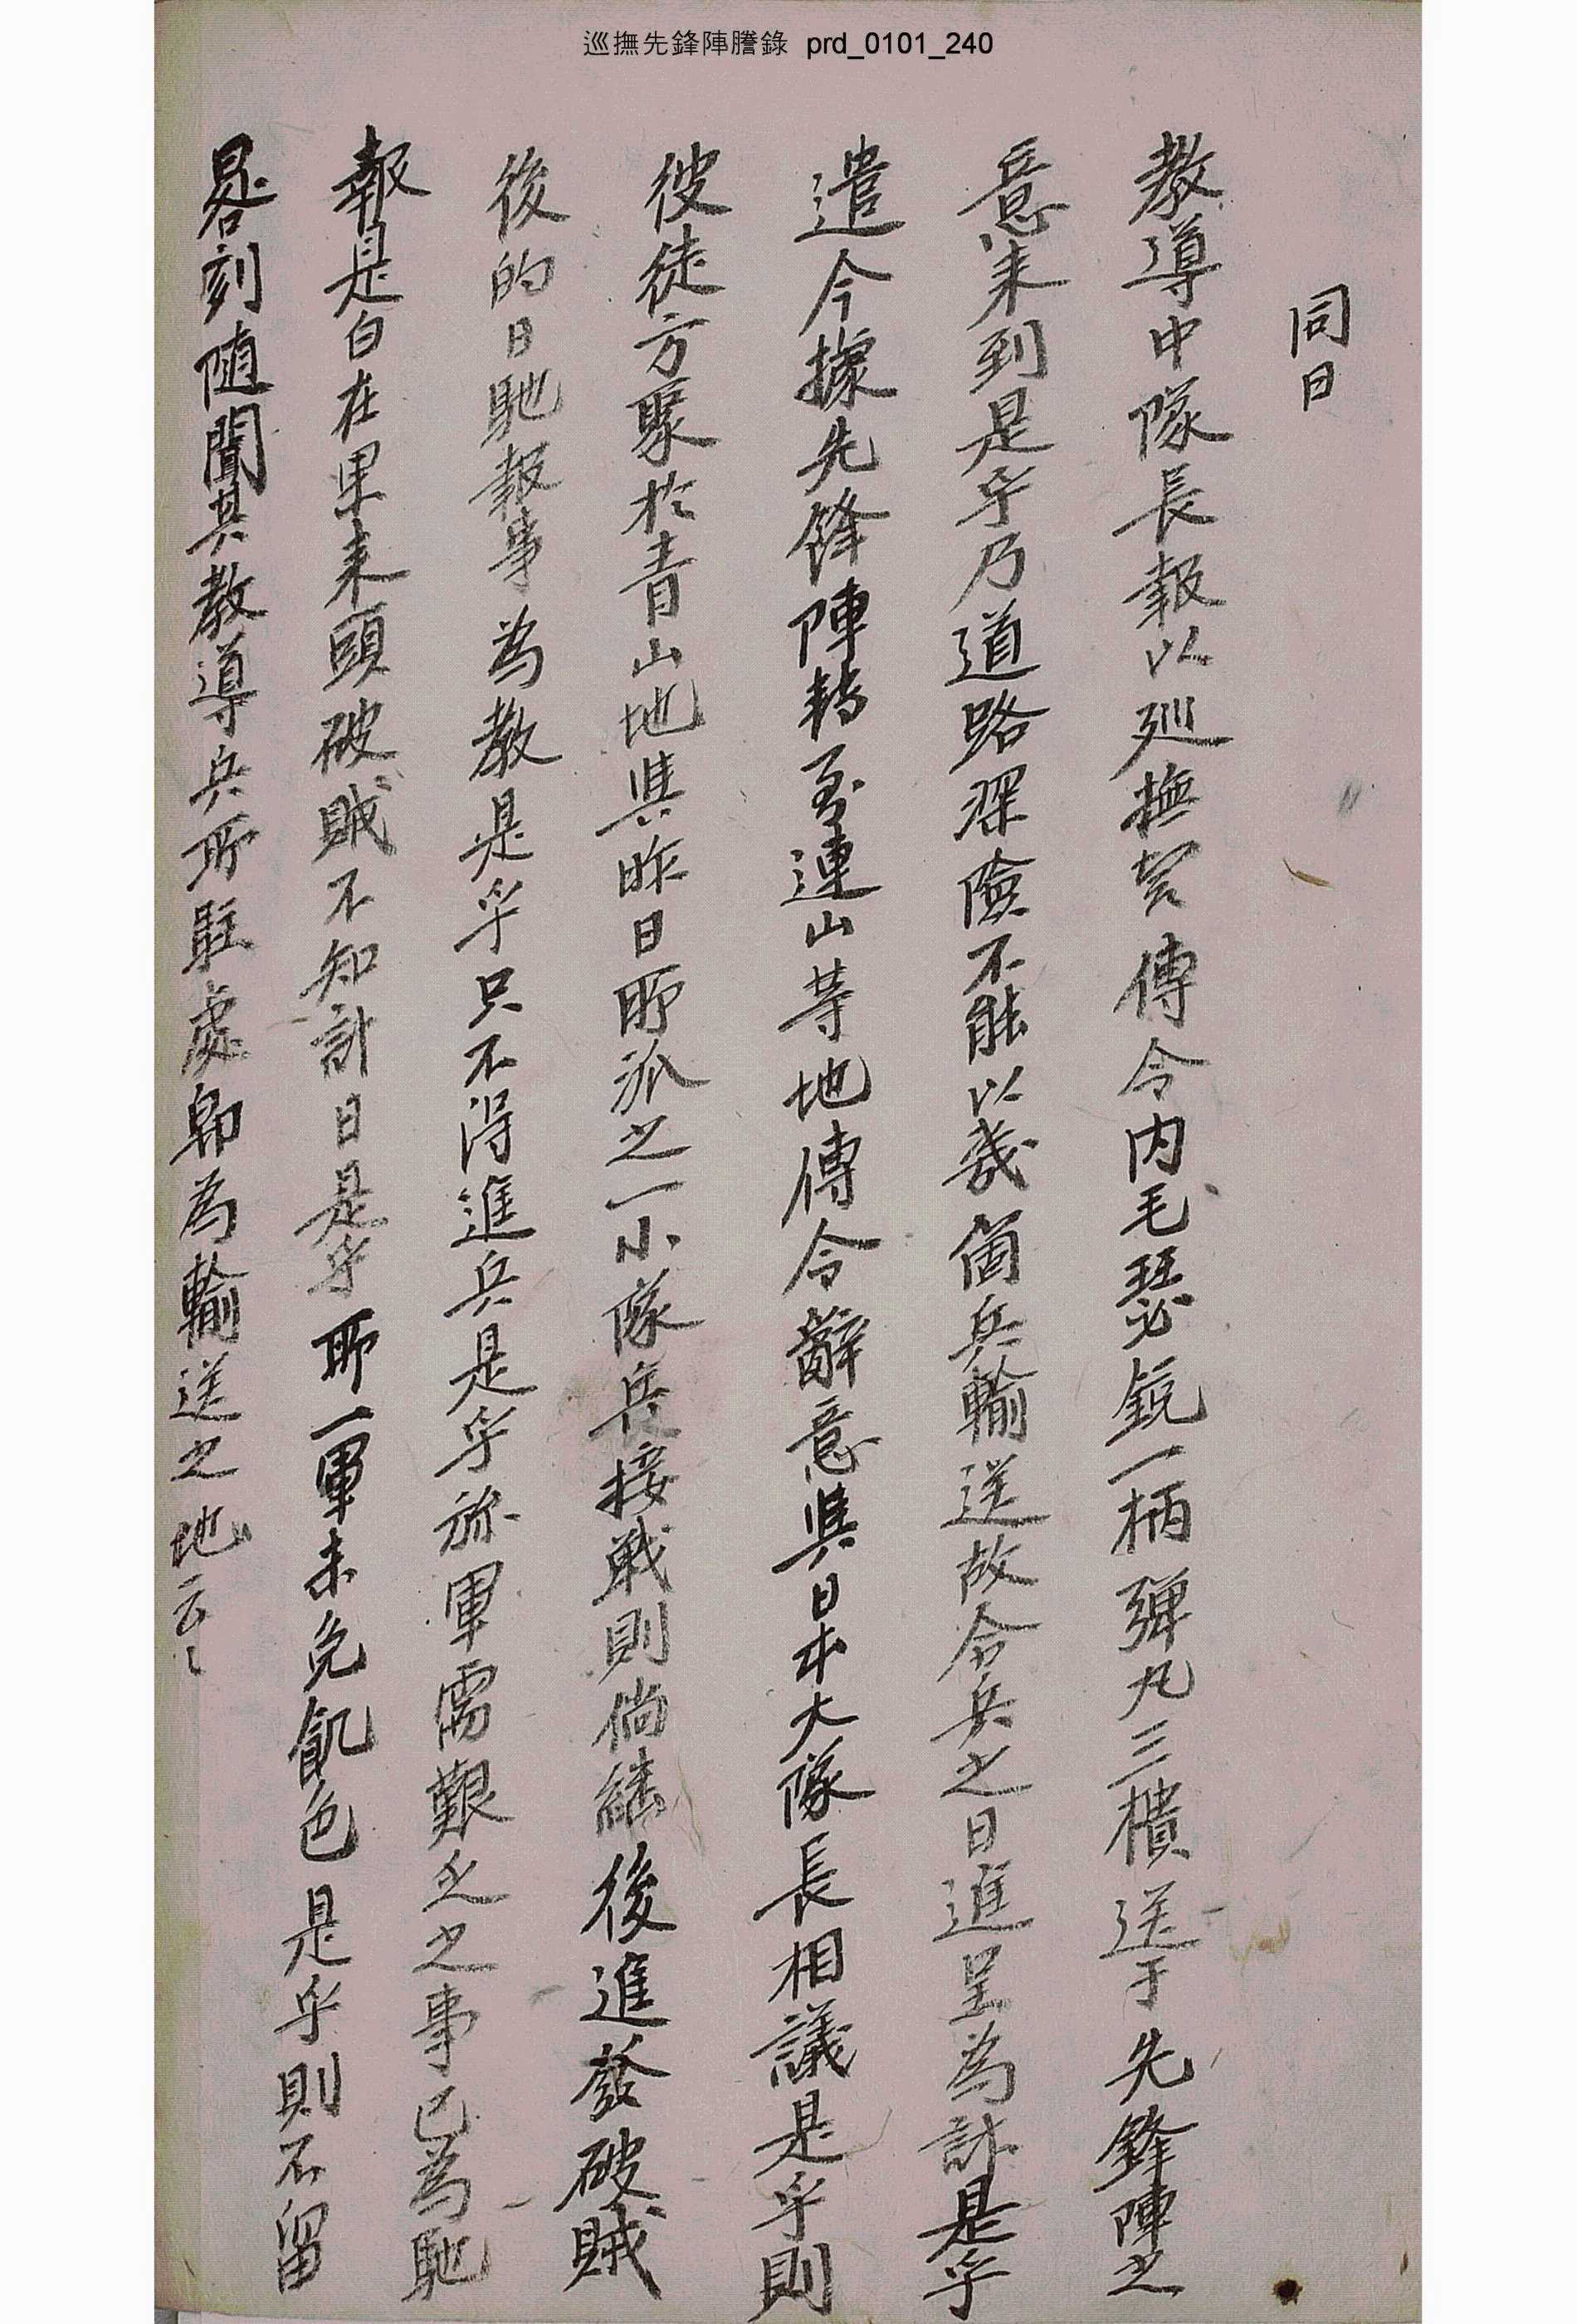 巡撫先鋒陣謄錄 prd_0101_240
同日
教導中隊長報以巡撫營傳令內毛瑟銃一柄弾丸三樻送于先鋒陣之
意来到是乎乃道路深險不能以幾箇兵輸送故合兵之日進呈為計是乎
遣今據先鋒陣轉至連山等地傳令辭意與日本大隊長相議是乎則
彼徒方聚於青山地與昨日所派之一小隊兵接戰則倘繼後進發破賊
後的日馳報事為教是乎只不得進兵是乎旀軍需艱乏之事已為馳
報是白在果来頭破賊不知計日是乎所一軍未免飢色是乎則不留
晷刻随聞其教導兵所駐處卽為輸送之地云〻